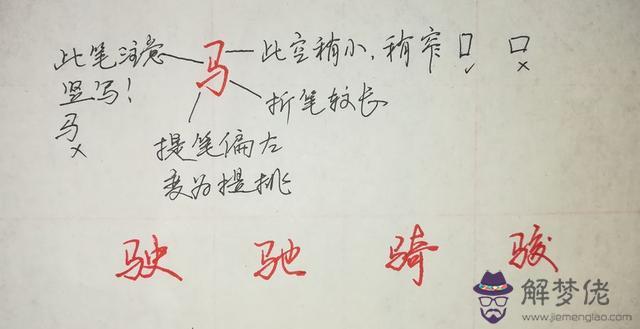 此笔注意
竖写!
马
×
马
此空稍小,稍窄
✓
×
折笔较长
提笔偏左
变为提挑
驶 驰 骑 骏
解梦佬
www.jiemenglao.com